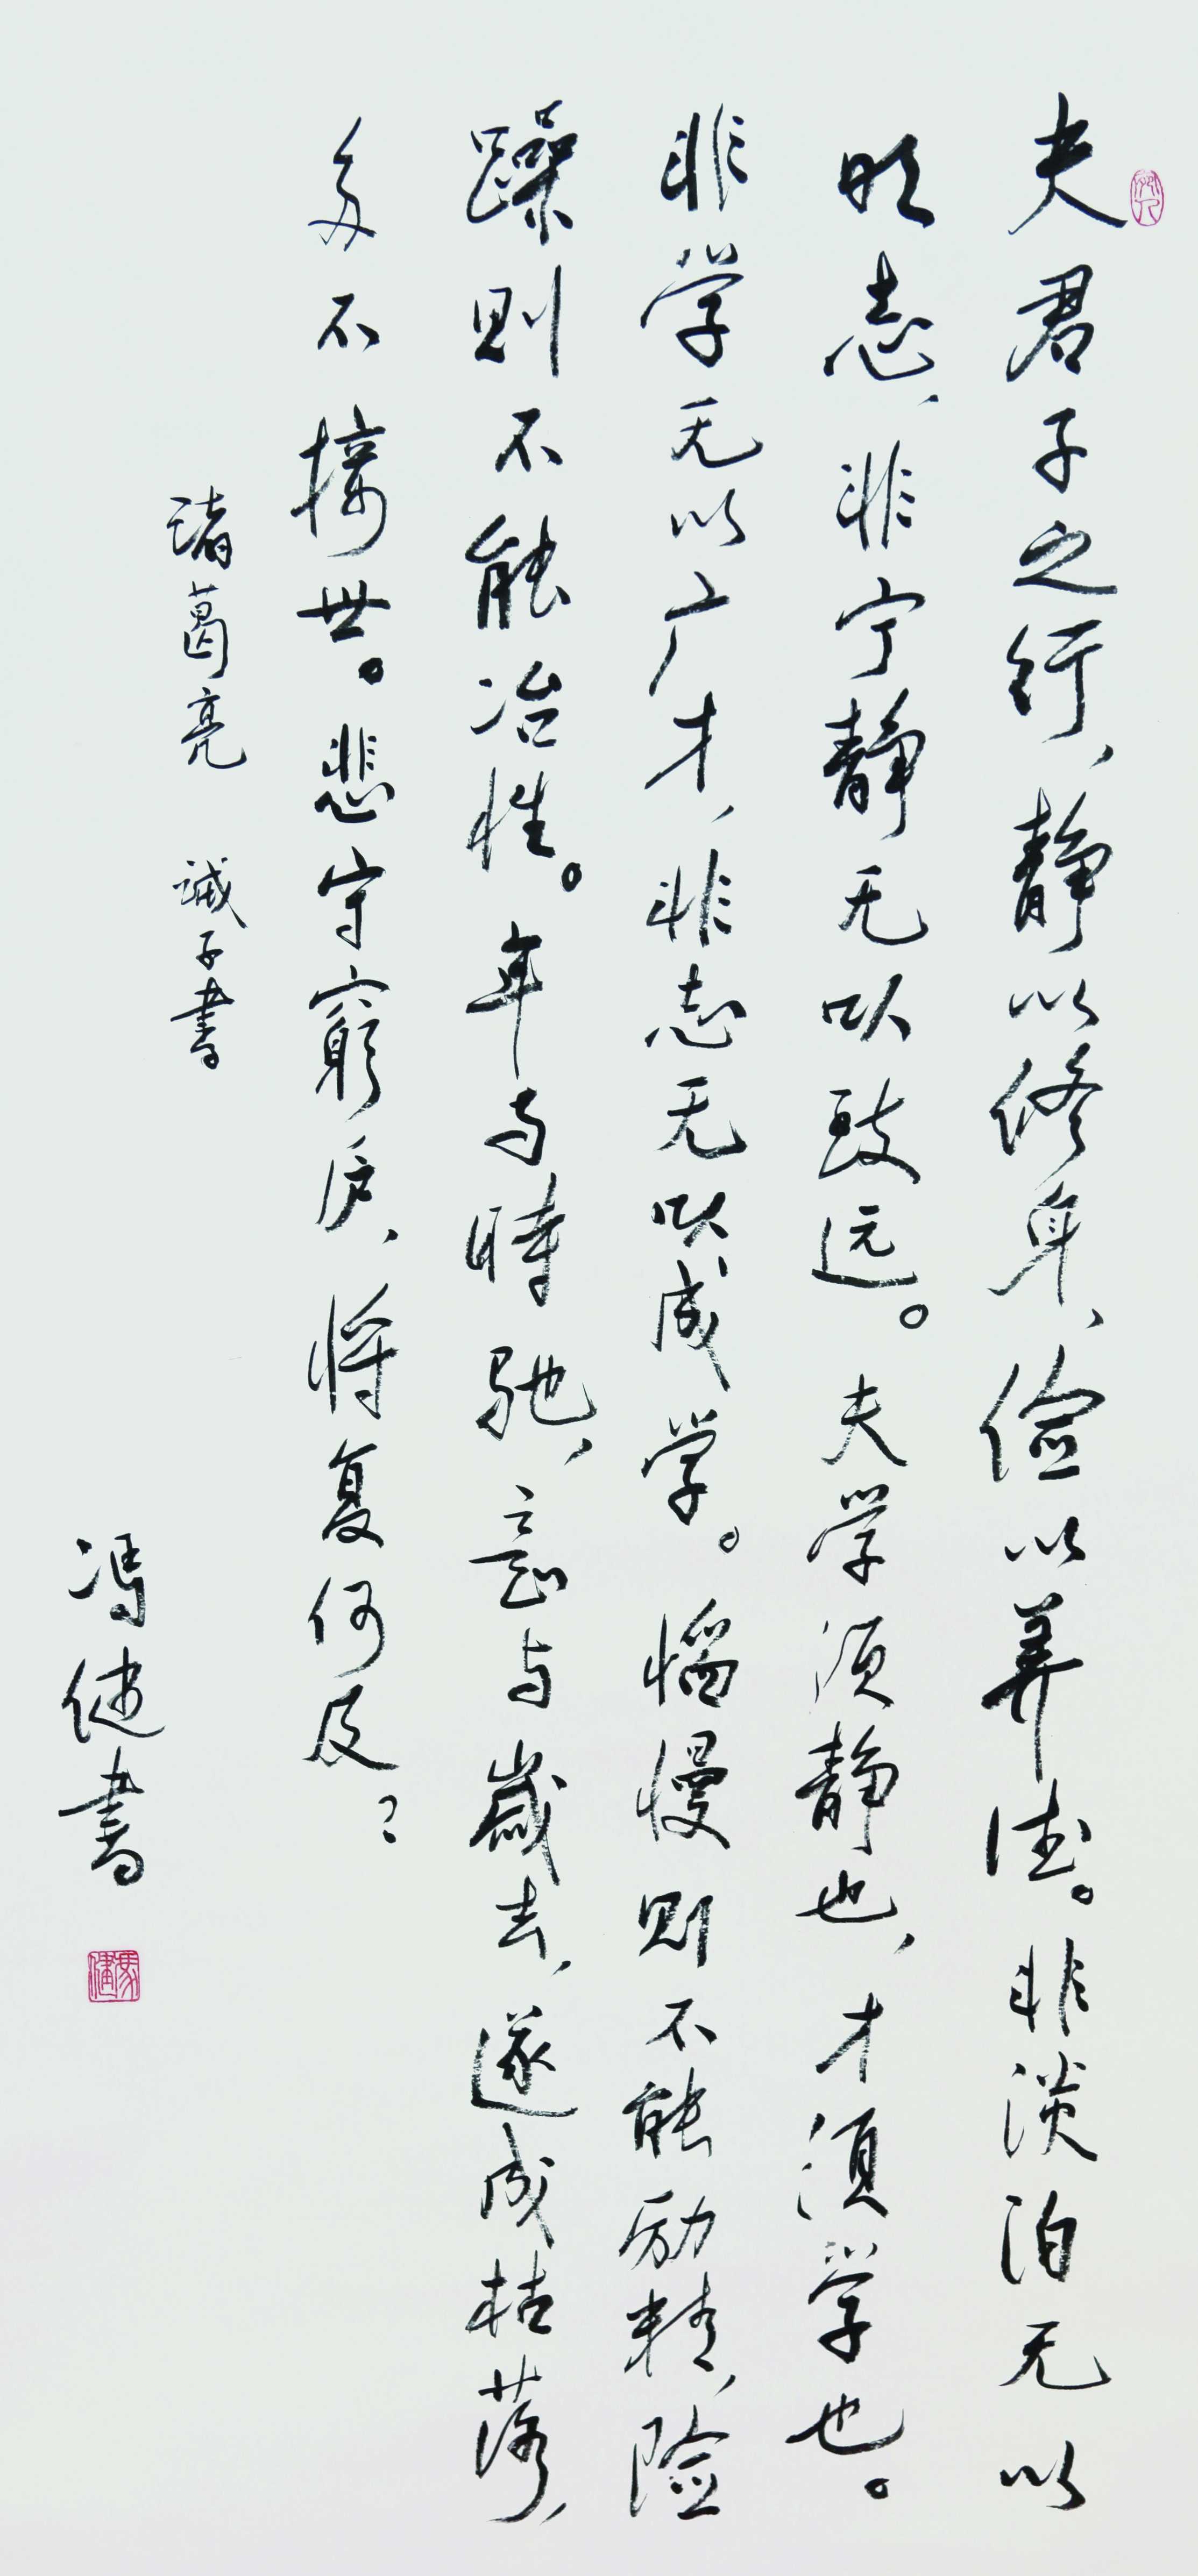 夫君子之行、静以修身、俭以养德。非淡泊无以
明志、非宁静无以致远。夫学须静也，才须学也。
非学无以广才，非志无以成学。慆慢则不能励精，险
躁则不能冶性。年与時驰，意与歲去，遂成枯落，
多不接世。悲守窮庐、将复何及？
诸葛亮 诫子書
冯健書
冯健